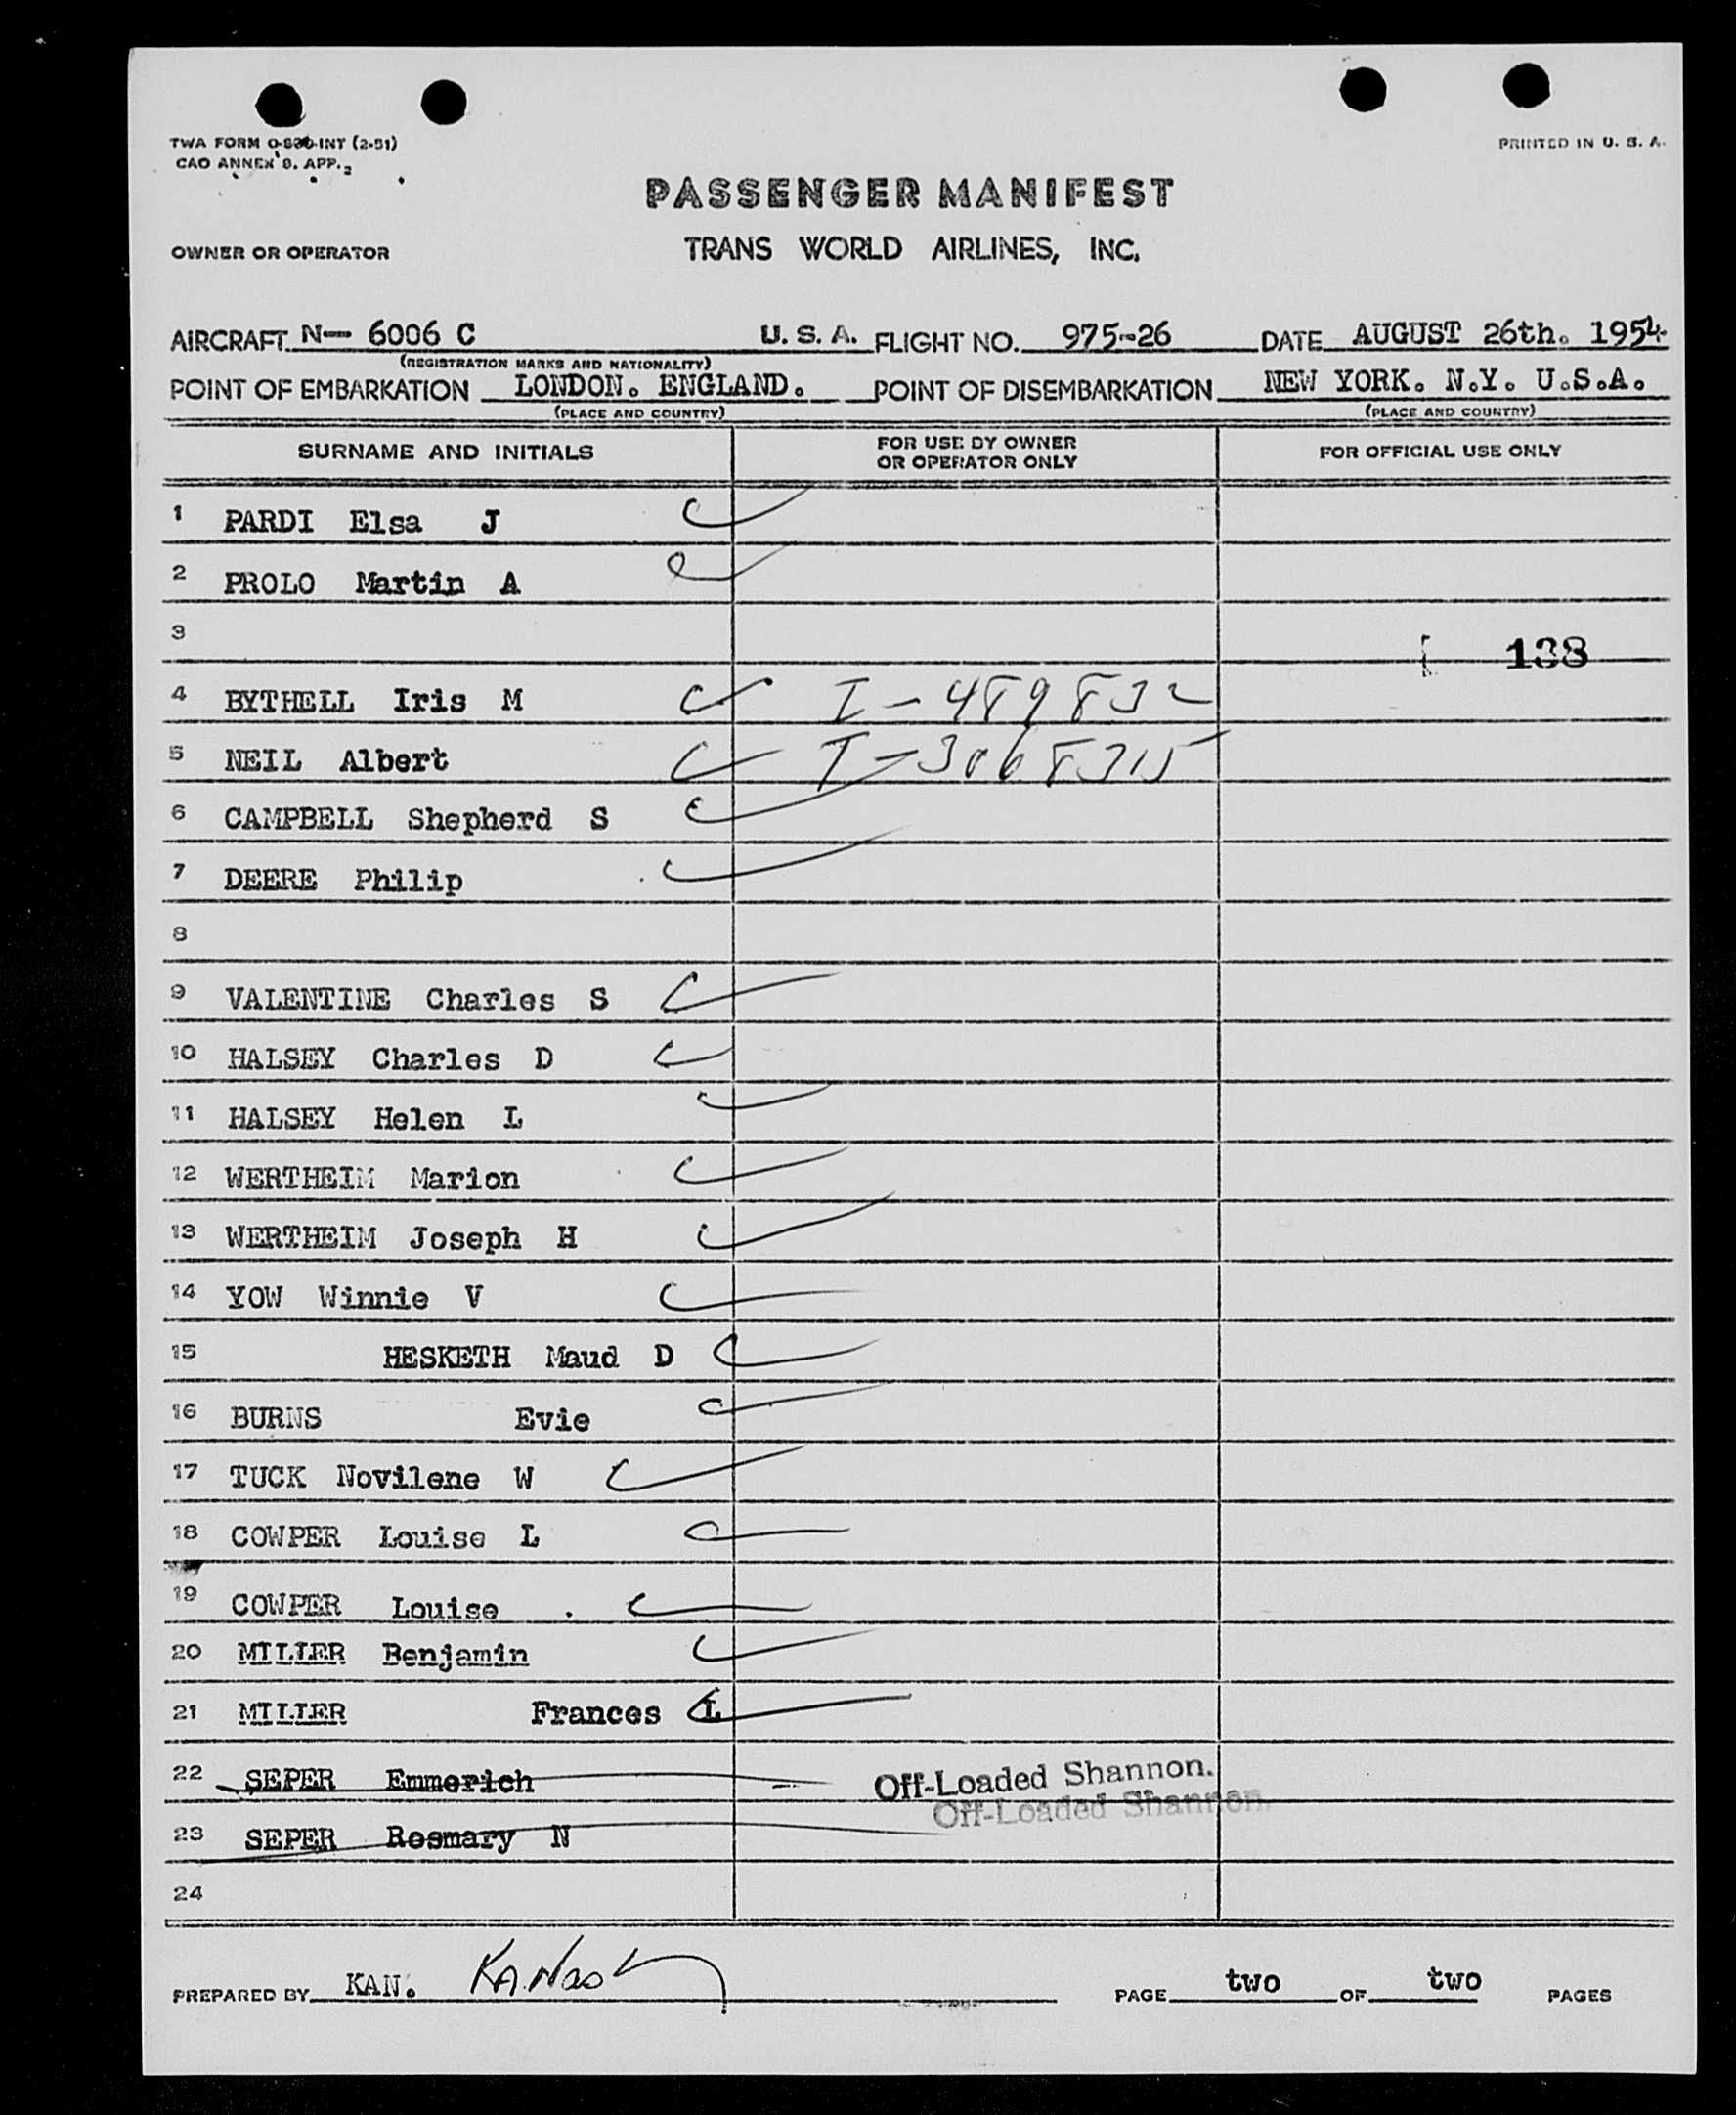 TWA FORM O-836-INT (2-51)
CAO ANNEX 9. APP. 2
PRINTED IN U. S. A.
PASSENGER MANIFEST
OWNER OR OPERATOR
TRANS WORLD AIRLINES, INC.
AIRCRAFT N— 6006 C U. S. A. FLIGHT NO. 975-26 DATE AUGUST 26th. 1954
(REGISTRATION MARKS AND NATIONALITY)
POINT OF EMBARKATION LONDON. ENGLAND. POINT OF DISEMBARKATION NEW YORK. N.Y. U.S.A.
(PLACE AND COUNTRY) (PLACE AND COUNTRY)
SURNAME AND INITIALS FOR USE BY OWNER OR OPERATOR ONLY FOR OFFICIAL USE ONLY
1 PARDI Elsa J
2 PROLO Martin A
3 138
4 BYTHELL Iris M I-489832
5 NEIL Albert
6 CAMPBELL Shepherd S
7 DEERE Philip
8
9 VALENTINE Charles S
10 HALSEY Charles D
11 HALSEY Helen L
12 WERTHEIM Marion
13 WERTHEIM Joseph H
14 YOW Winnie V
15 HESKETH Maud D
16 BURNS Evie
17 TUCK Novilene W
18 COWPER Louise L
19 COWPER Louise .
20 MILLER Benjamin
21 MILLER Frances L
22 SEPER Emmerich Off-Loaded Shannon.
Off-Loaded Shannon.
23 SEPER Rosmary N
24
PREPARED BY KAN. K.A.Nash PAGE two OF two PAGES